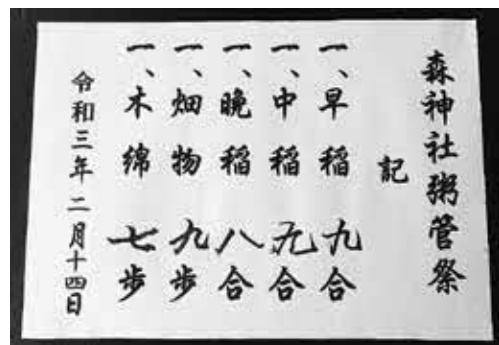 森神社粥管祭
記
一、早稲 九合
一、中稲 九合
一、晩稲 八合
一、畑物 九歩
一、木綿 七歩
令和三年二月十四日